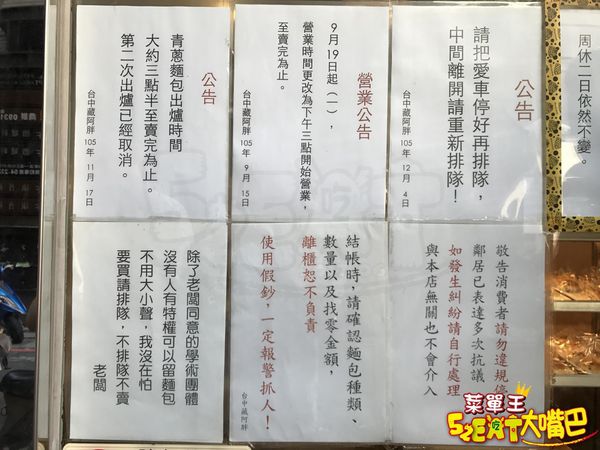 公告
請把愛車停好再排隊，
中間離開請重新排隊！
台中藏阿胖 105年 12月 4日
營業公告
9月19日起（一），
營業時間更改為下午三點開始營業，
至賣完為止。
台中藏阿胖 105年 9月 15日
公告
青蔥麵包出爐時間
大約三點半至賣完為止。
第二次出爐已經取消。
台中藏阿胖 105年 11月 17日
周休二日依然不變。
敬告消費者請勿違規停
鄰居已表達多次抗議
如發生糾紛請自行處理
與本店無關也不會介入
結帳時，請確認麵包種類、
數量以及找零金額，
離櫃恕不負責
使用假鈔，一定報警抓人！
台中藏阿胖
除了老闆同意的學術團體
沒有人有特權可以留麵包
不用大小聲，我沒在怕
要買請排隊，不排隊不賣
老闆
菜單王
52EAT大嘴巴
吃